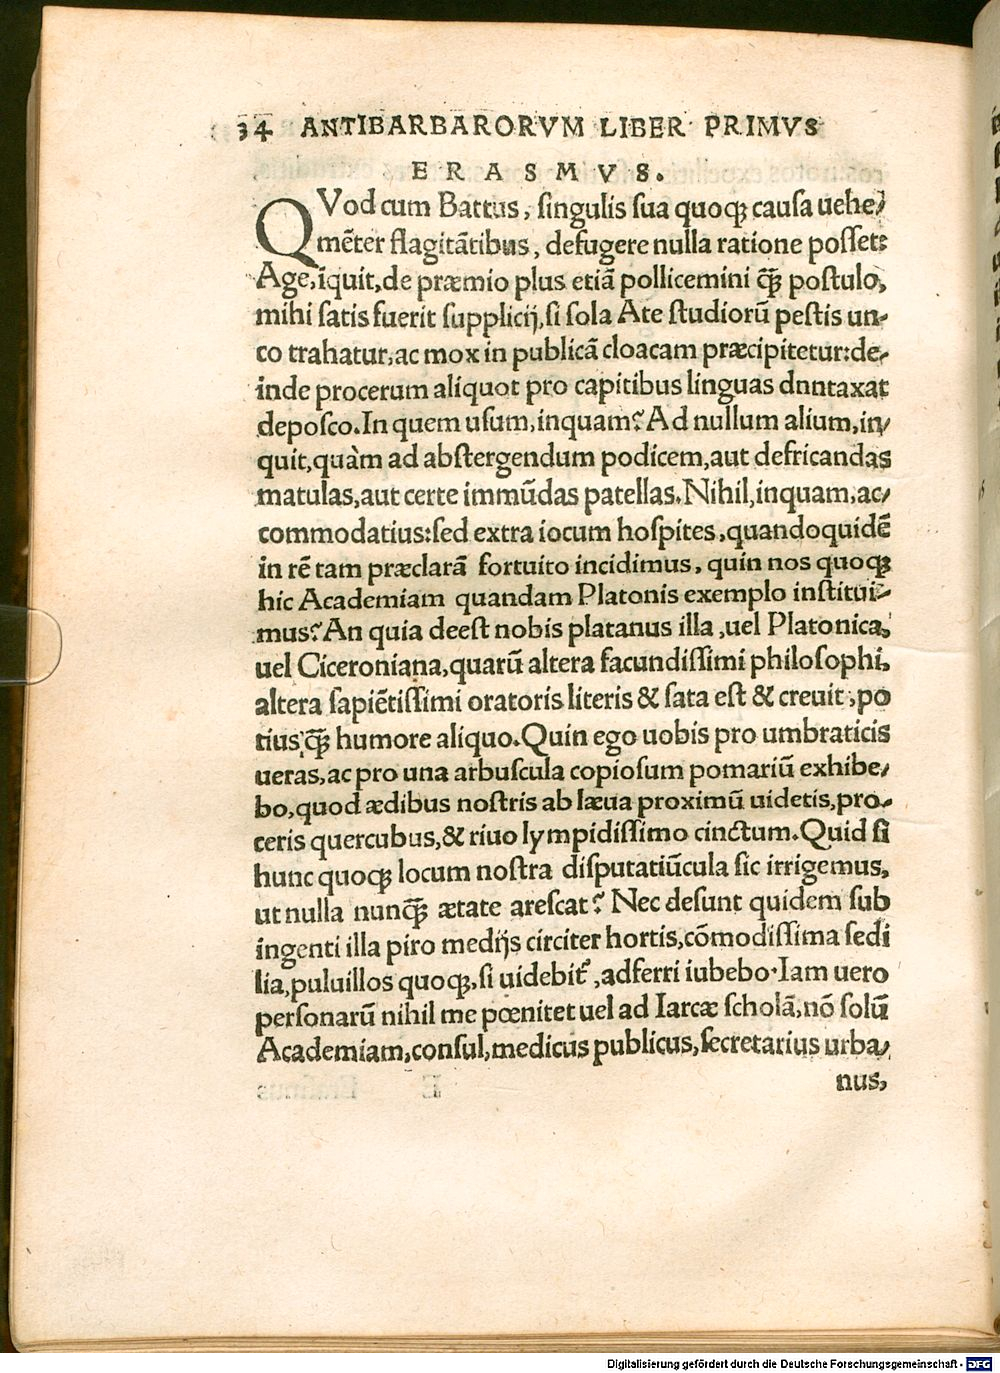 34 ANTIBARBARORVM LIBER PRIMVS
ERASMVS.
QVod cum Battus, singulis sua quoq; causa uehe/
mēter flagitātibus, defugere nulla ratione posset:
Age, īquit, de præmio plus etiā pollicemini q̄; postulo,
mihi satis fuerit supplicij, si sola Ate studiorū pestis un-
co trahatur, ac mox in publicā cloacam præcipitetur: de-
inde procerum aliquot pro capitibus linguas dnntaxat
deposco. In quem usum, inquam? Ad nullum alium, in/
quit, quàm ad abstergendum podicem, aut defricandas
matulas, aut certe immūdas patellas. Nihil, inquam, ac/
commodatius: sed extra iocum hospites, quandoquidē
in rē tam præclarā fortuito incidimus, quin nos quoq;
hic Academiam quandam Platonis exemplo institui-
mus? An quia deest nobis platanus illa, uel Platonica,
uel Ciceroniana, quarū altera facundissimi philosophi,
altera sapiētissimi oratoris literis & sata est & creuit, po
tius q̄; humore aliquo. Quin ego uobis pro umbraticis
ueras, ac pro una arbuscula copiosum pomariū exhibe/
bo, quod ædibus nostris ab læua proximū uidetis, pro-
ceris quercubus, & riuo lympidissimo cinctum. Quid si
hunc quoq; locum nostra disputatiūcula sic irrigemus,
ut nulla nunq̄; ætate arescat? Nec desunt quidem sub
ingenti illa piro medijs circiter hortis, cōmodissima sedi
lia, puluillos quoq;, si uidebit᷑, adferri iubebo. Iam uero
personarū nihil me pœnitet uel ad Iarcæ scholā, nō solū
Academiam, consul, medicus publicus, secretarius urba/
nus,
Digitalisierung gefördert durch die Deutsche Forschungsgemeinschaft - DFG